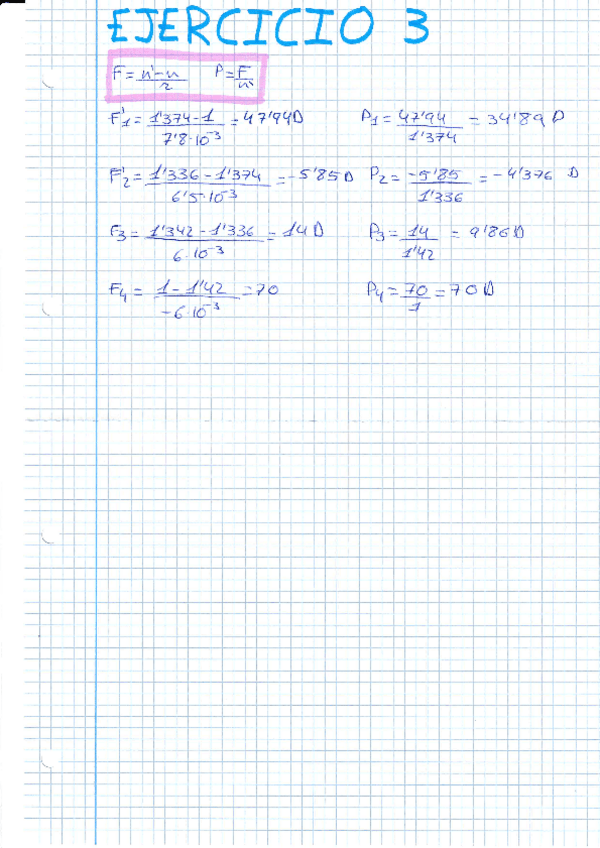 EJERCICIO 3
F = n'-n / r P = F / n'
F'1 = 1'374-1 / 7'8·10^-3 = 47'94D P1 = 47'94 / 1'374 = 34'89 D
F'2 = 1'336-1'374 / 6'5·10^-3 = -5'85 D P2 = -5'85 / 1'336 = -4'376 D
F3 = 1'342-1'336 / 6·10^-3 = 14 D P3 = 14 / 1'42 = 9'86 D
F4 = 1-1'42 / -6·10^-3 = 70 P4 = 70 / 1 = 70 D